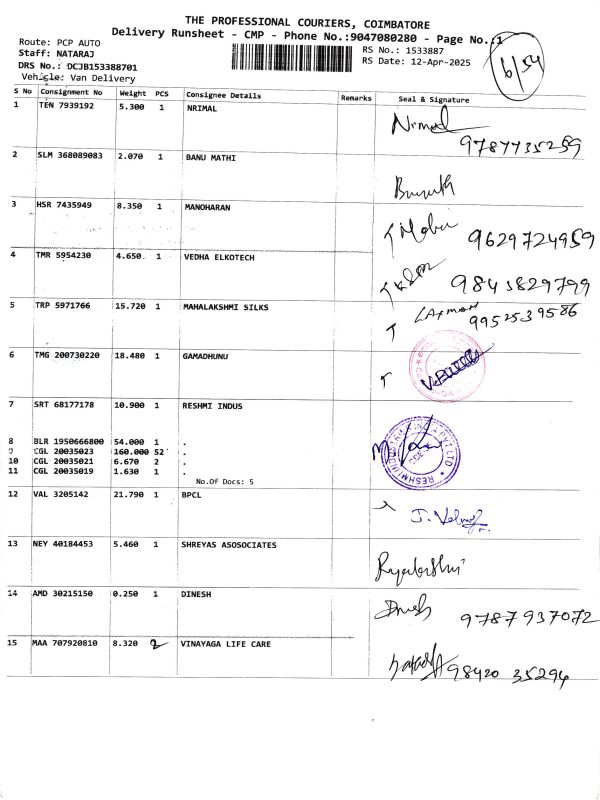 THE PROFESSIONAL COURIERS, COIMBATORE
Delivery Runsheet - CMP - Phone No.:9047080280 - Page No.:1
Route: PCP AUTO
RS No.: 1533887
Staff: NATARAJ
RS Date: 12-Apr-2025
DRS No.: DCJB153388701
Vehicle: Van Delivery
S No Consignment No Weight PCS Consignee Details Remarks Seal & Signature
1 TEN 7939192 5.300 1 NRIMAL
Nirmal
9787735259
2 SLM 368089083 2.070 1 BANU MATHI
3 HSR 7435949 8.350 1 MANOHARAN
9629724959
4 TMR 5954230 4.650 1 VEDHA ELKOTECH
9843829799
5 TRP 5971766 15.720 1 MAHALAKSHMI SILKS
LAxman
9952539586
6 TMG 200730220 18.480 1 GAMADHUNU
7 SRT 68177178 10.900 1 RESHMI INDUS
8 BLR 1950666800 54.000 1 .
9 CGL 20035023 160.000 52 .
10 CGL 20035021 6.670 2 .
11 CGL 20035019 1.630 1 .
No.Of Docs: 5
12 VAL 3205142 21.790 1 BPCL
13 NEY 40184453 5.460 1 SHREYAS ASOSOCIATES
14 AMD 30215150 0.250 1 DINESH
Dinesh
9787937072
15 MAA 707920810 8.320 2 VINAYAGA LIFE CARE
98420 35294